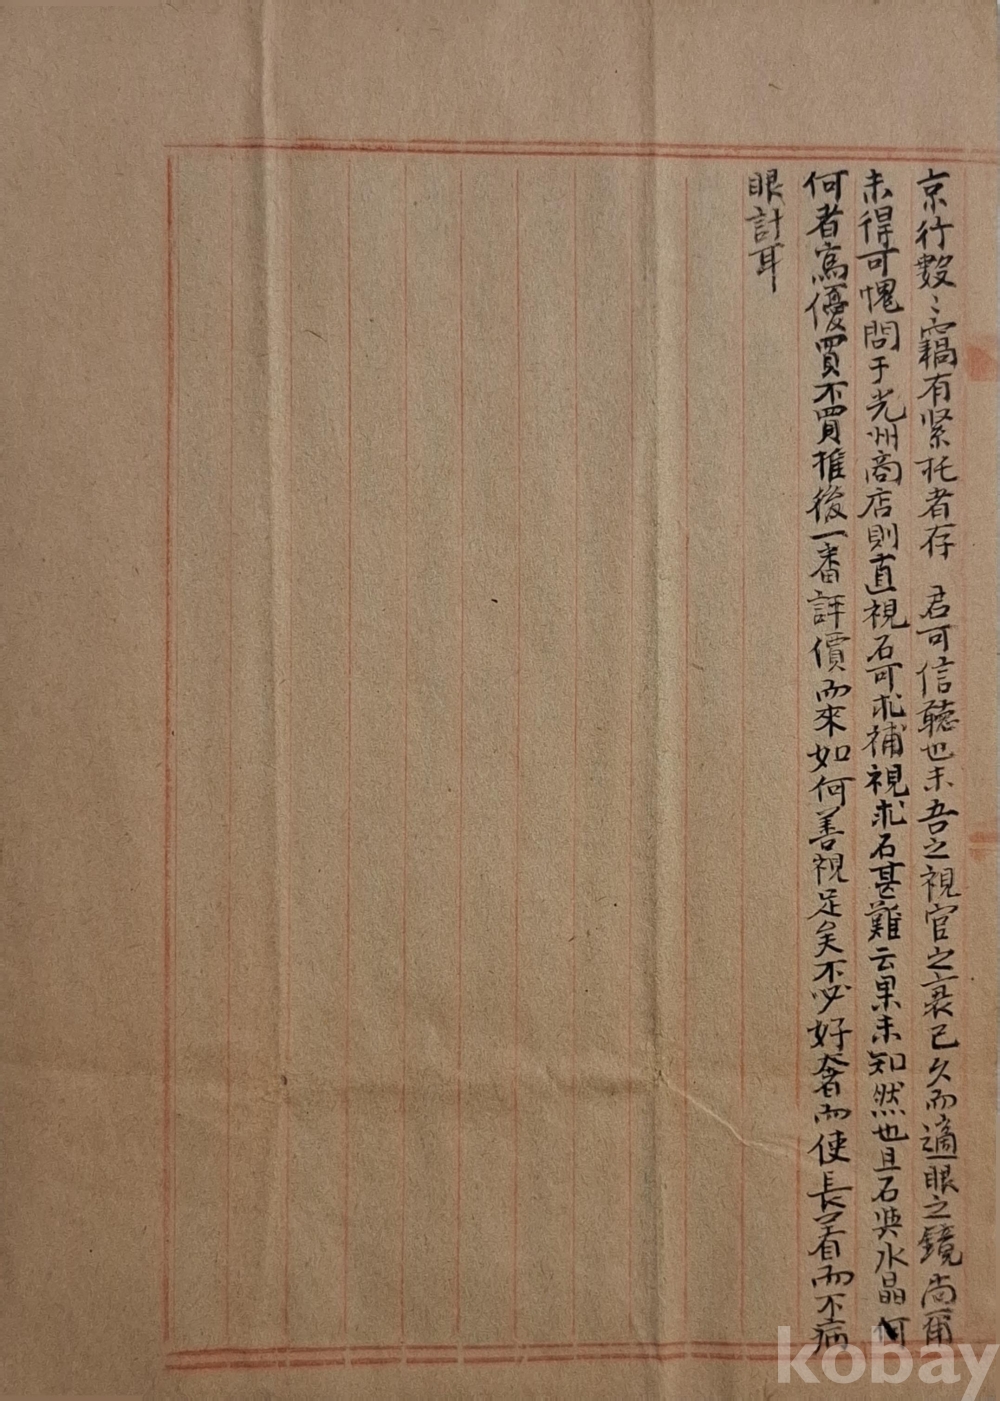 京行數〻竊有紧托者存 君可信聽也未吾之視官之衰已久而適眼之鏡尚爾
未得可愧問于光州商店則直視石可求補視求石甚難云果未知然也且石與水晶何
何者寫優買不買推後一番評價而來如何善視足矣不必好奢而使長着而不病
眼計耳
kobay